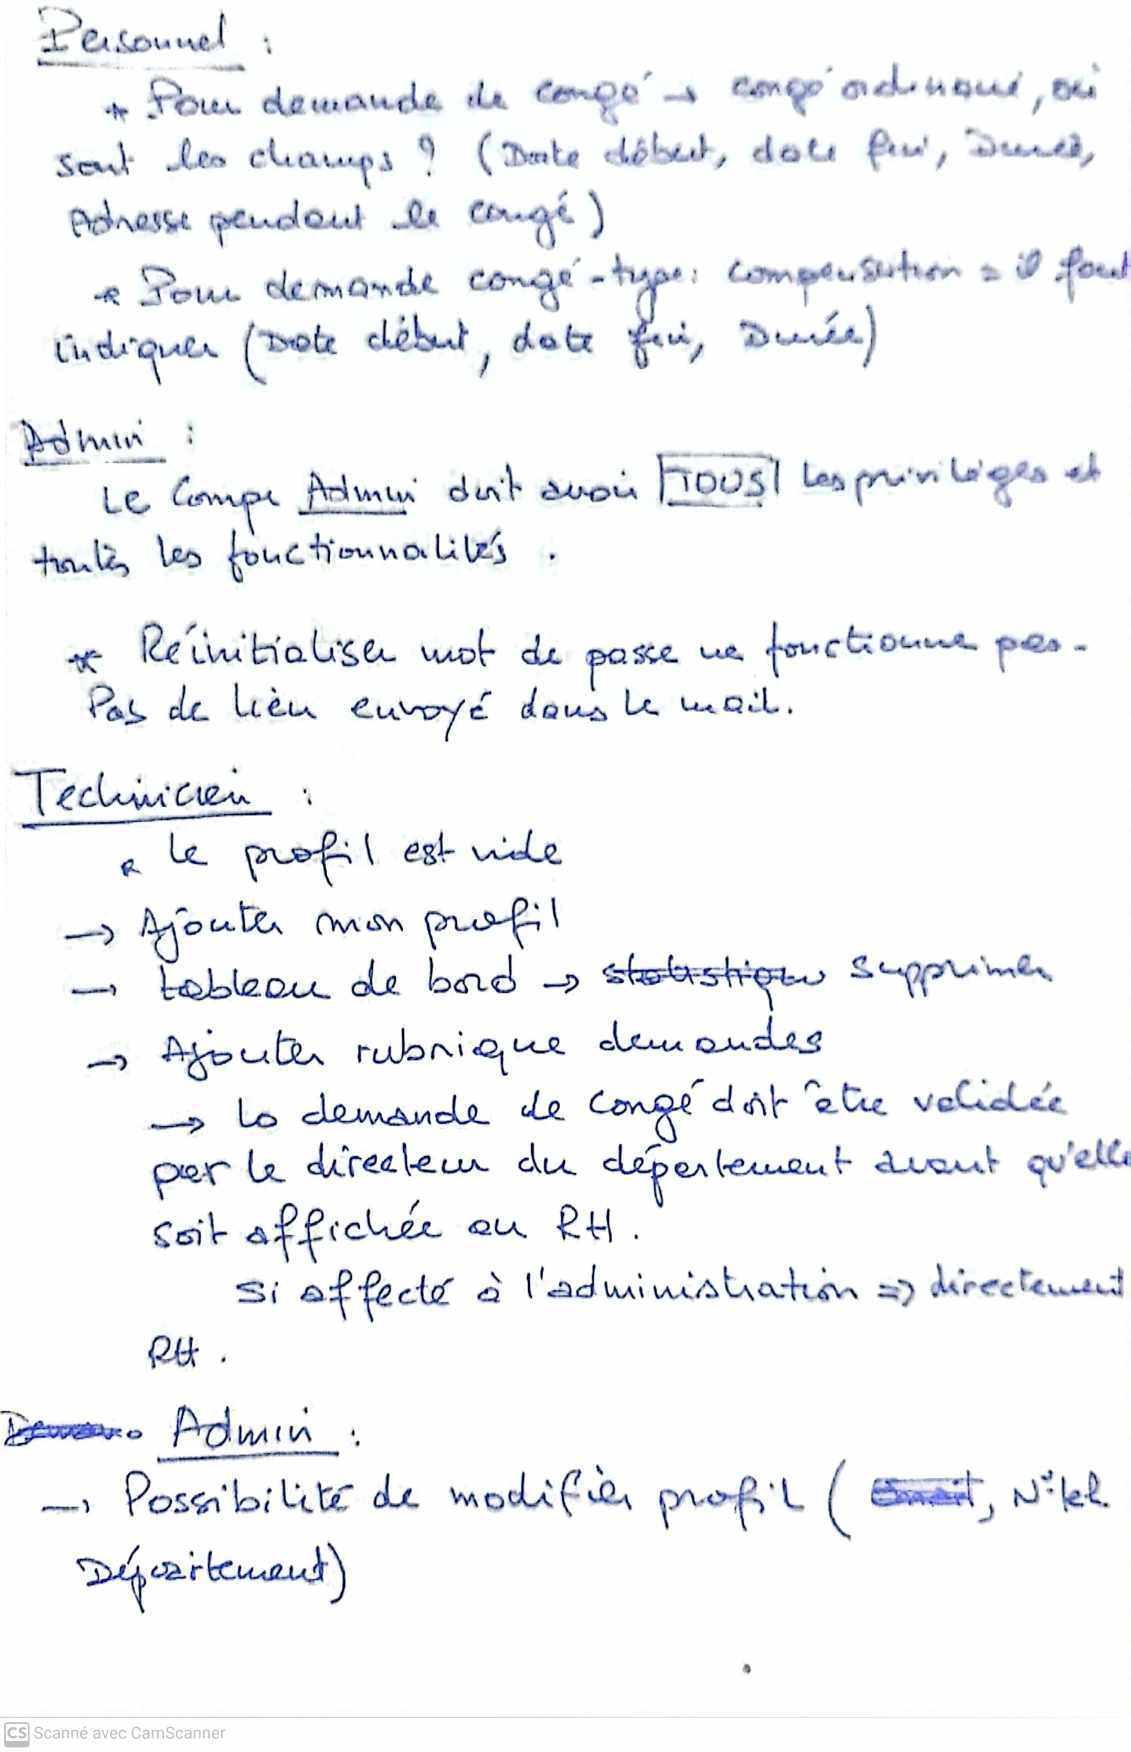 Personnel :
* Pour demande de congé → congé ordinaire, où
sont les champs ? (Date début, date fin, Durée,
Adresse pendant le congé)
* Pour demande congé-type: compensation = il faut
indiquer (Date début, date fin, Durée)
Admin :
Le Compe Admin doit avoir TOUS les privilèges et
toutes les fonctionnalités .
* Réinitialiser mot de passe ne fonctionne pas -
Pas de lien envoyé dans le mail.
Technicien :
* le profil est vide
→ Ajouter mon profil
→ tableau de bord → statistique supprimer
→ Ajouter rubrique demandes
→ la demande de congé doit être validée
par le directeur du département avant qu'elle
soit affichée au RH .
Si affecté à l'administration => directement
RH .
Admin :
→ Possibilité de modifier profil ( Email, N° tel
Département)
CS Scanné avec CamScanner